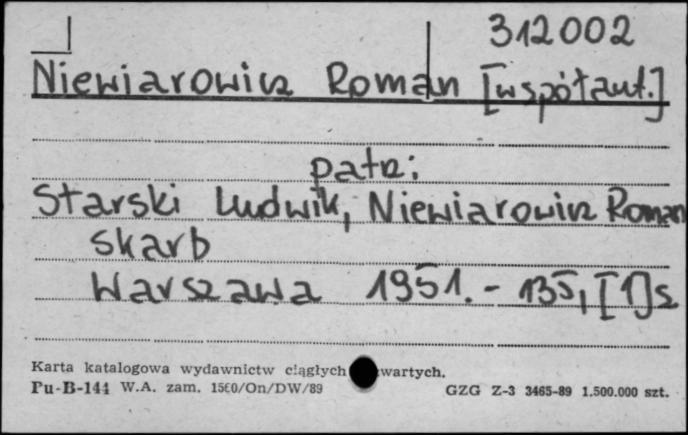 312002
Niewiarowicz Roman [współaut.]
patrz:
Starski Ludwik, Niewiarowicz Roman
Skarb
Warszawa 1951. - 135, [1] s
Karta katalogowa wydawnictw ciągłych wartych.
Pu-B-144 W.A. zam. 1560/On/DW/89 GZG Z-3 3465-89 1.500.000 szt.